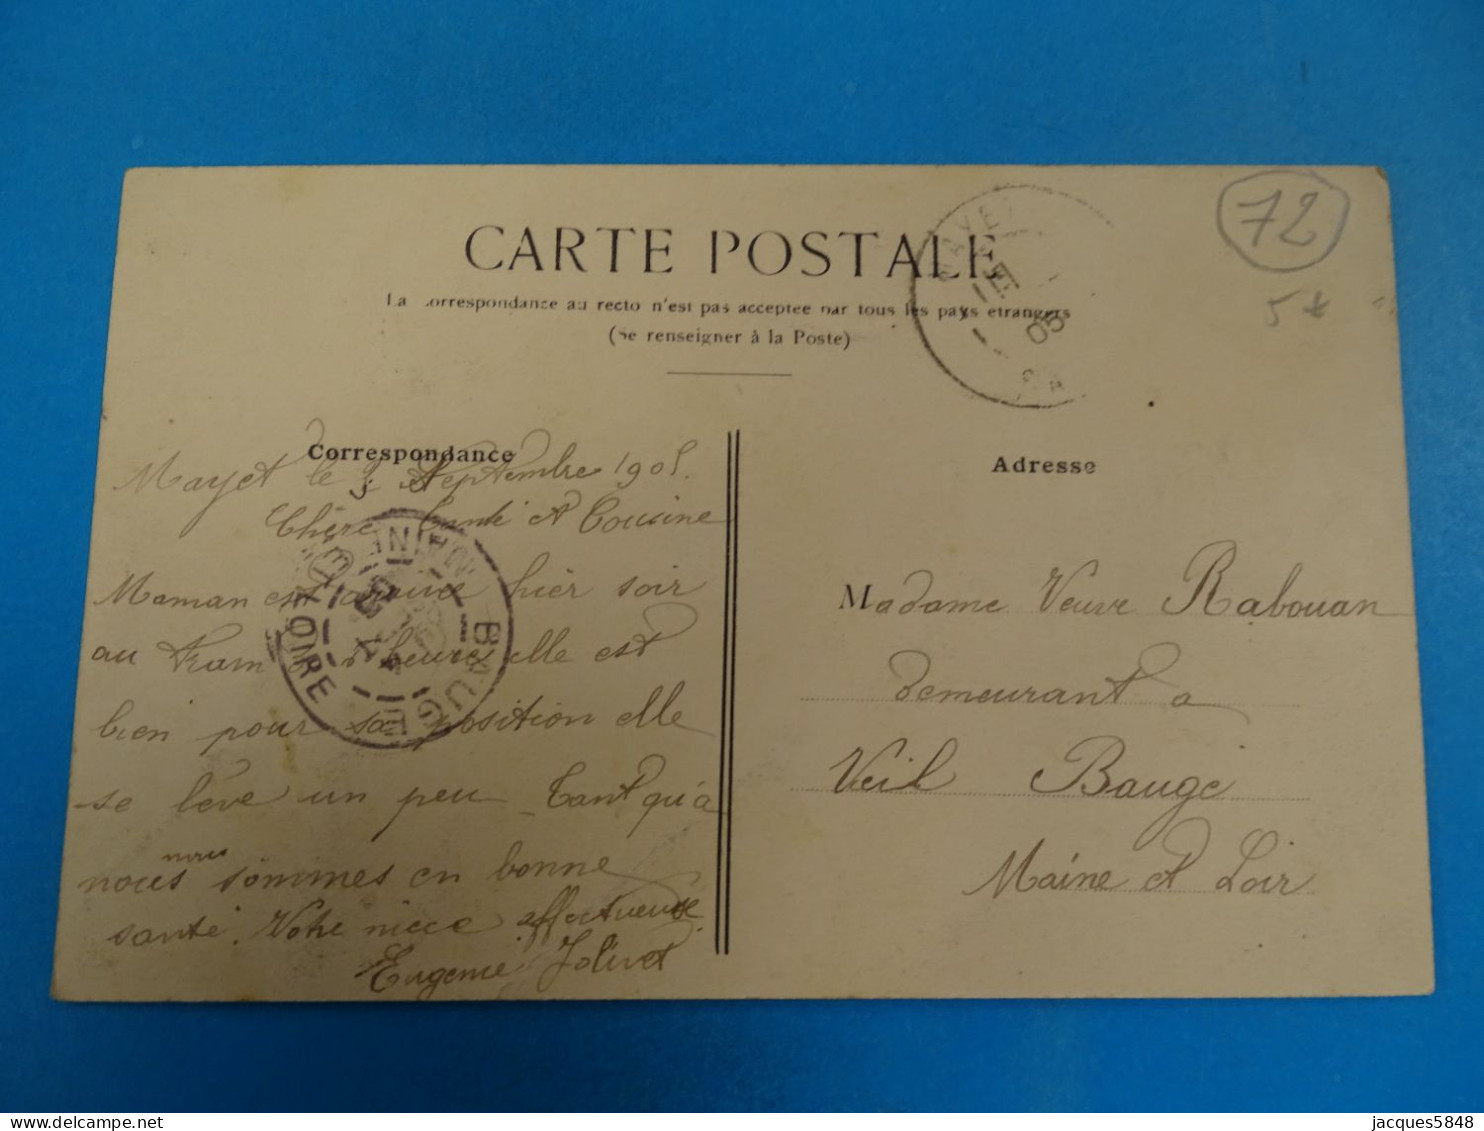 CARTE POSTALE
La correspondance au recto n'est pas acceptée par tous les pays étrangers
(Se renseigner à la Poste)
MAYET
05
72
5*
Correspondance
Mayet le 3 Septembre 1905.
Chère Tante et Cousine
Maman est arrivé hier soir
au tram heures elle est
bien pour sa position elle
se lève un peu Tant qu'à
nous
nous sommes en bonne
santé. Votre niece affectueuse
Eugenie Jolivet
BAUGÉ
MAINE ET LOIRE
Adresse
Madame Veuve Rabouan
demeurant a
Veil Bauge
Maine et Loir
jacques5848